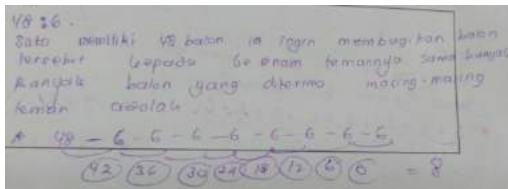 48 : 6.
Sato memiliki 48 balon. ia ingin membagikan balon
tersebut kepada ke enam temannya sama banyak
banyak balon yang diterima masing-masing
teman adalah . . .
* 48 - 6 - 6 - 6 - 6 - 6 - 6 - 6 - 6
42 36 30 24 18 12 6 0 = 8